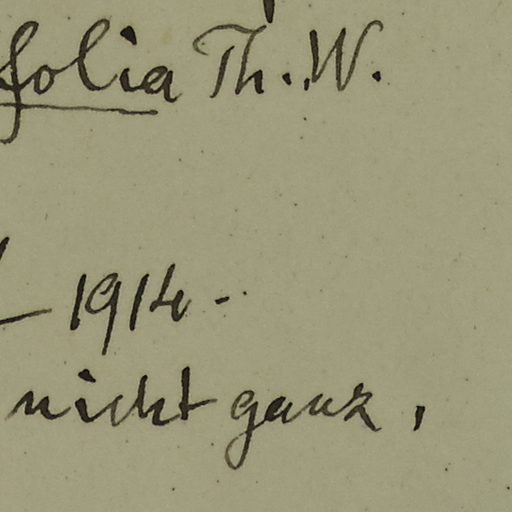 folia Th. W.
1914.
nicht ganz,